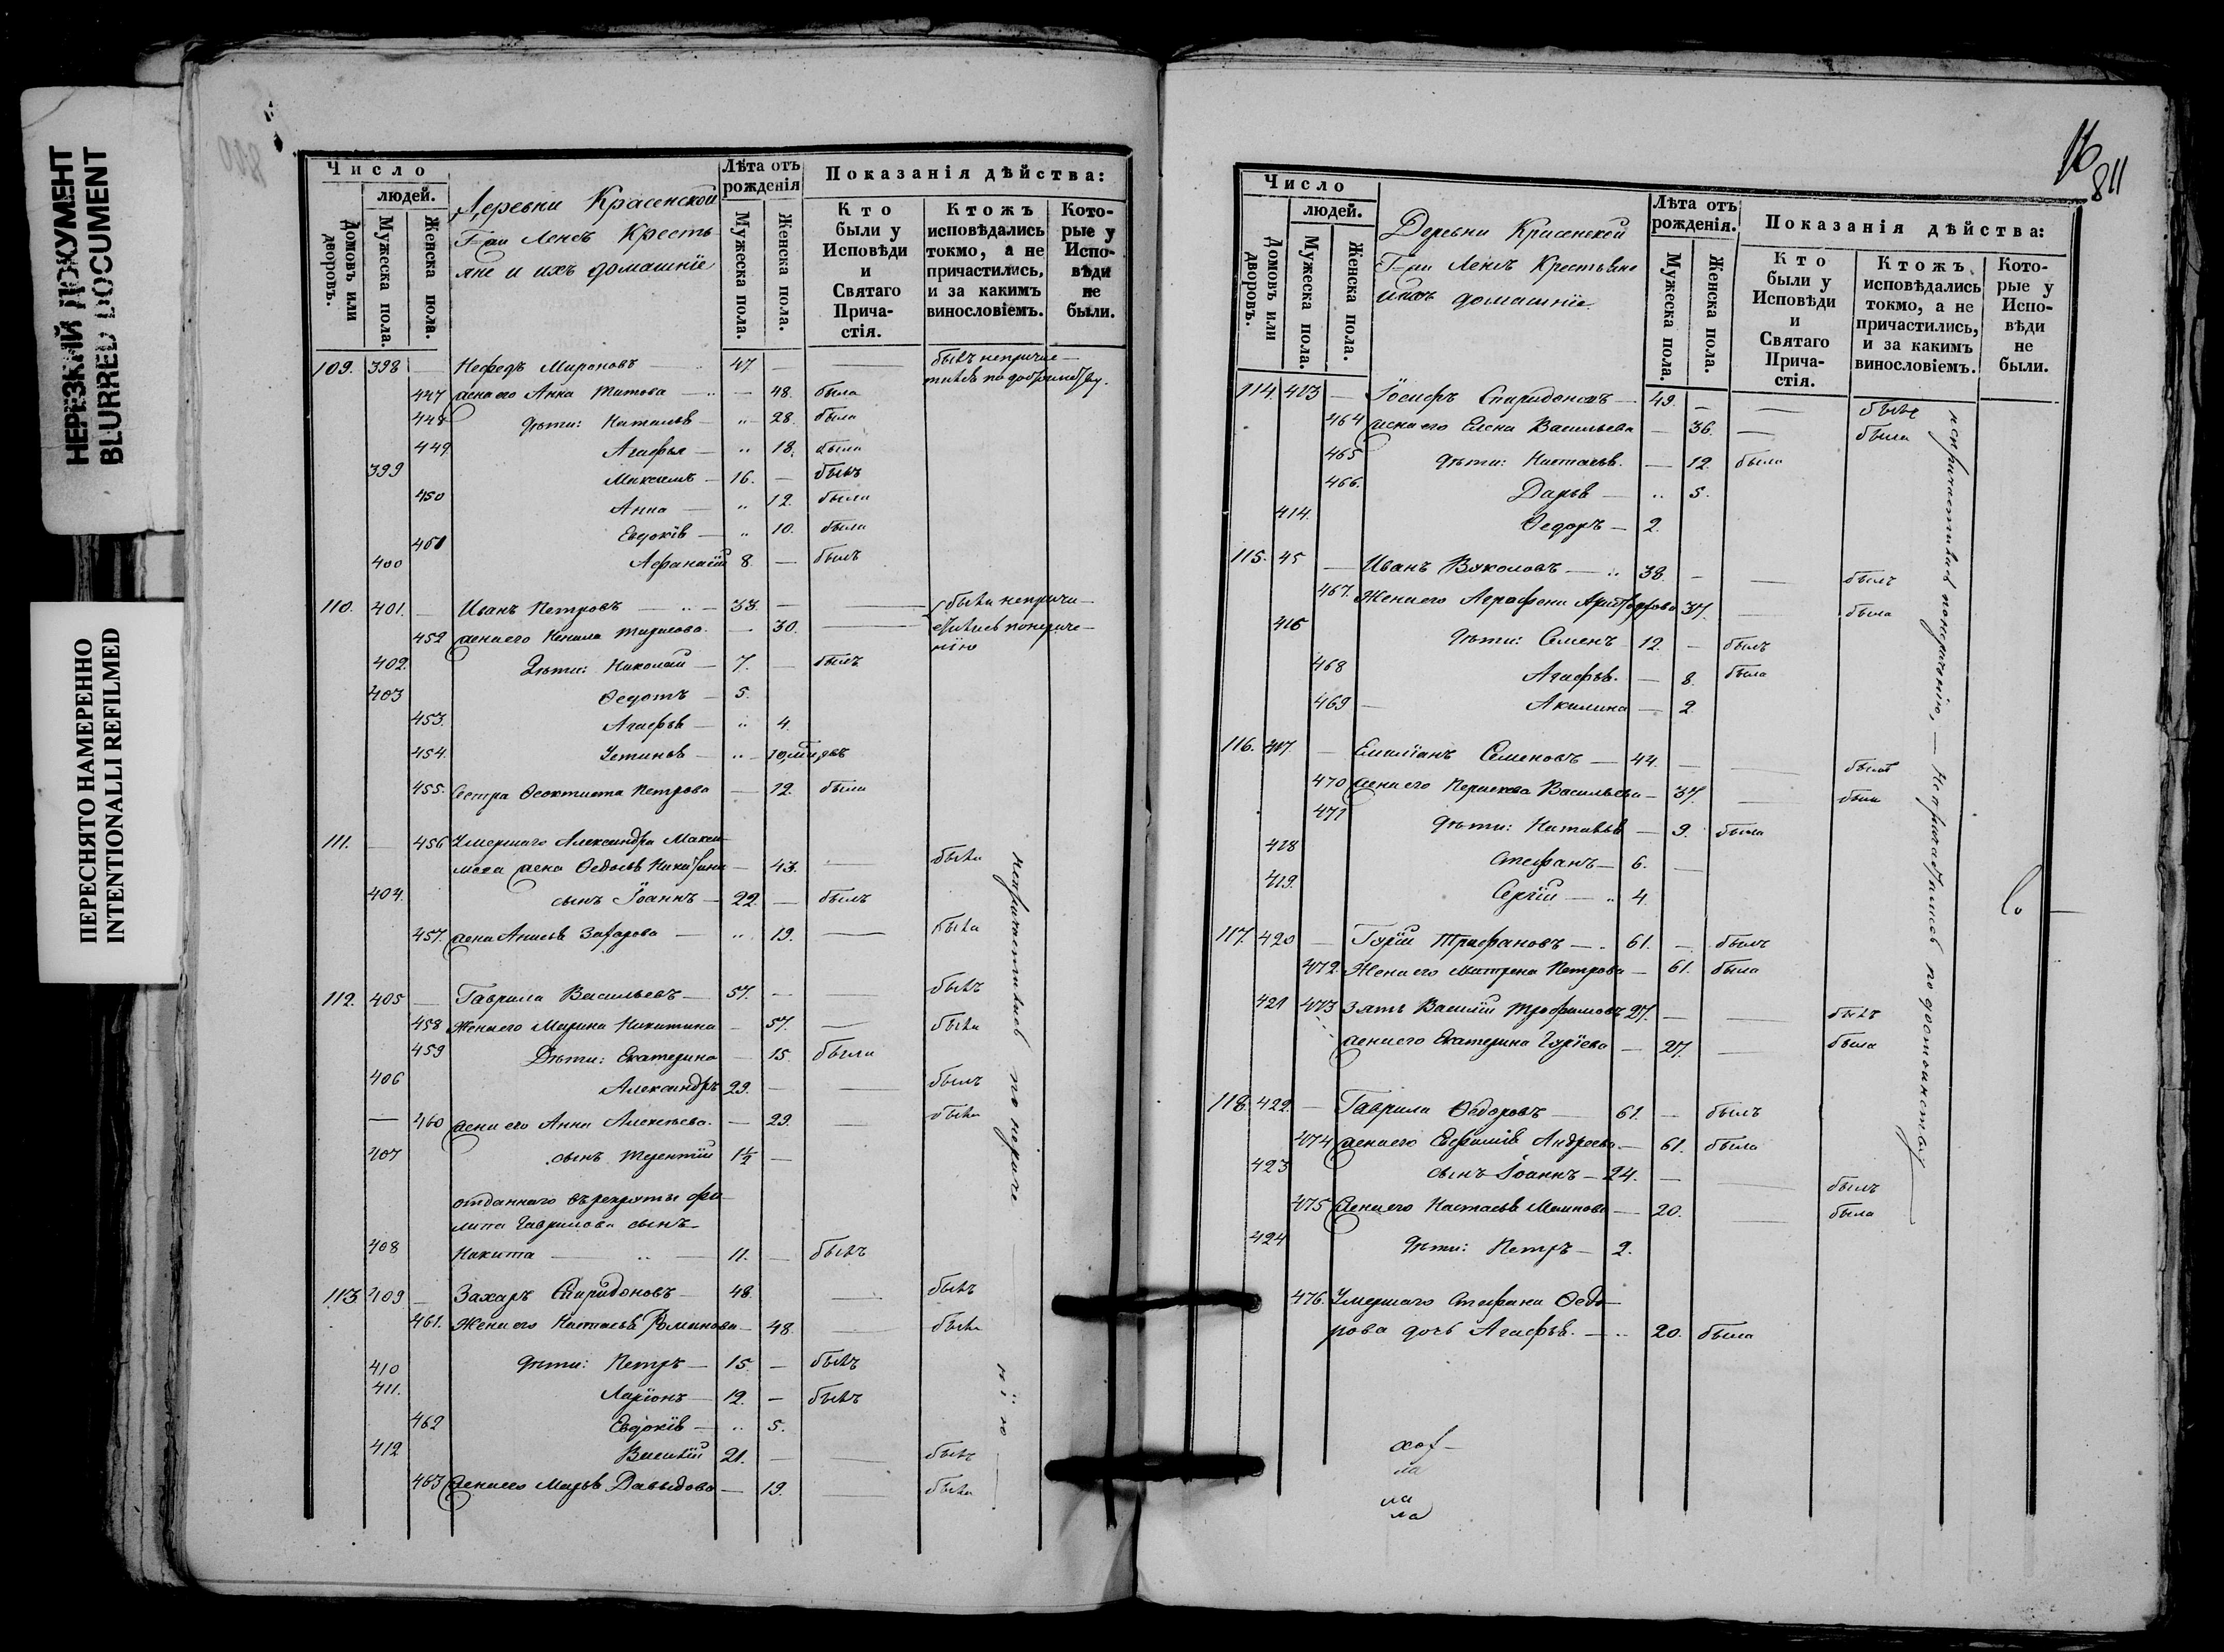 НЕРЕЗКИЙ ДОКУМЕНТ
BLURRED DOCUMENT
ПЕРЕСНЯТО НАМЕРЕННО
INTENTIONALLI REFILMED
Число
людей.
Домовъ или дворовъ.
Мужеска пола.
Женска пола.
Деревни Красенской
Г=жи Ленсъ Кресть
яне и ихъ домашніе
Лѣта отъ рожденія
Мужеска пола.
Женска пола.
Показанія дѣйства:
Кто были у Исповѣди и Святаго Прича-стія.
Ктожъ исповѣдались токмо, а не причастились, и за какимъ винословіемъ.
Кото-рые у Испо-вѣди не были.
109. 398 — Нефедъ Мироновъ — 47 — — былъ непричас—
447 жена его Анна Титова — 48. была
448 дѣти: Наталья — 28. была
449 Агафья — 18. была
399 Максимъ — 16. — былъ
450 Анна — 12. была
451 Евдокія — 10. была
400 Афанасій 8. — былъ
110. 401. — Иванъ Петровъ — 33. — — были неприча—
452 жена его 30. — стились по нераче—
нію
402. Дѣти: Николай — 7. — былъ
403 Ѳедотъ — 5.
453. Агафья — 4.
454. Устинья —
455. Сестра Ѳеоктиста Петрова — 12. была
111. — 456 Умершаго Александра Макси
мова жена Ѳедосья Никитина — 43. — была
404. сынъ Іоаннъ — 22. — былъ
457. жена Анисья Захарова — 19. — была
непричастились по нераче
112. 405 — Гаврила Васильевъ — 57. — — былъ
458 Жена его Марина Никитина — 57. — была
459 Дѣти: Екатерина — 15. была
406 Александръ 23. — — былъ
— 460 жена его Анна Алексѣева. — 23. — была
407 сынъ Терентій 1½ —
отданнаго въ рекруты Фи
липа Гаврилова сынъ
408 Никита — 11. — былъ
113. 409 — Захаръ Спиридоновъ — 48. — былъ
461. Жена его Настасья — 48. — была
410 дѣти: Петръ — 15 — былъ
411. Ларіонъ — 12. — былъ
462 Евдокія — 5.
412 Василій 21. — — былъ
463 жена его Марья Давыдова — 19. — была
нію
16
811
Число
людей.
Домовъ или дворовъ.
Мужеска пола.
Женска пола.
Деревни Красенской
Г=жи Ленсъ Крестьяне
ихъ домашніе
Лѣта отъ рожденія.
Мужеска пола.
Женска пола.
Показанія дѣйства:
Кто были у Исповѣди и Святаго Прича-стія.
Ктожъ исповѣдались токмо, а не причастились, и за какимъ винословіемъ.
Кото-рые у Испо-вѣди не были.
114. 413 — Іосифъ Спиридоновъ — 49. — — былъ
464 жена его Елена Васильева — 36. — была
465 дѣти: Настасья. — 12. была
466. Дарья — 5.
414. Ѳедоръ — 2.
115. 45 — Иванъ Вуколовъ — 38. — — былъ
467. Жена его 37. — была
416 дѣти: Семенъ 12. — былъ
468 Агафья. — 8. была
469 — Акилина — 2
116. 417. — Емеліанъ Семеновъ — 44. — — былъ
470 жена его Васильева — 37. — была
471 дѣти: Наталья — 9. была
418 Стефанъ — 6. —
419. Сергій — 4.
117. 420 — Гурій Трифановъ — 61. — былъ
472. Жена его Матрена Петрова — 61. была
421 473 Зять Василій Трофимовъ 27. — — былъ
жена его Екатерина Гуріева — 27. — была
118. 422. — Гаврила Ѳедоровъ — 61. — былъ
474 жена его Евфимія Андреева — 61. была
423 сынъ Іоаннъ — 24. — — былъ
475 жена его Настасья — 20. — была
424 дѣти: Петръ — 2.
476. Умершаго Стефана Ѳедо
рова дочь Агафья. — 20. была
непричастились по нераченію, — Не причастились по достоинству